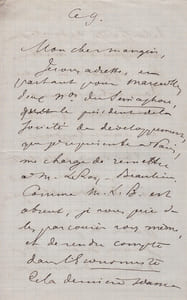 Ce 9.
Mon cher mangin,
Je vous adresse, en
partant pour marseille
deux Nos du Sémaphore,
que le président de la
Société de développement,
que je représente à Paris,
me charge de remettre
à M. Leroy-Beaulieu.
Comme M. L. B. est
absent, je vous prie de
les parcourir vous même,
et de rendre compte
dans l'Economiste
de la dernière séance